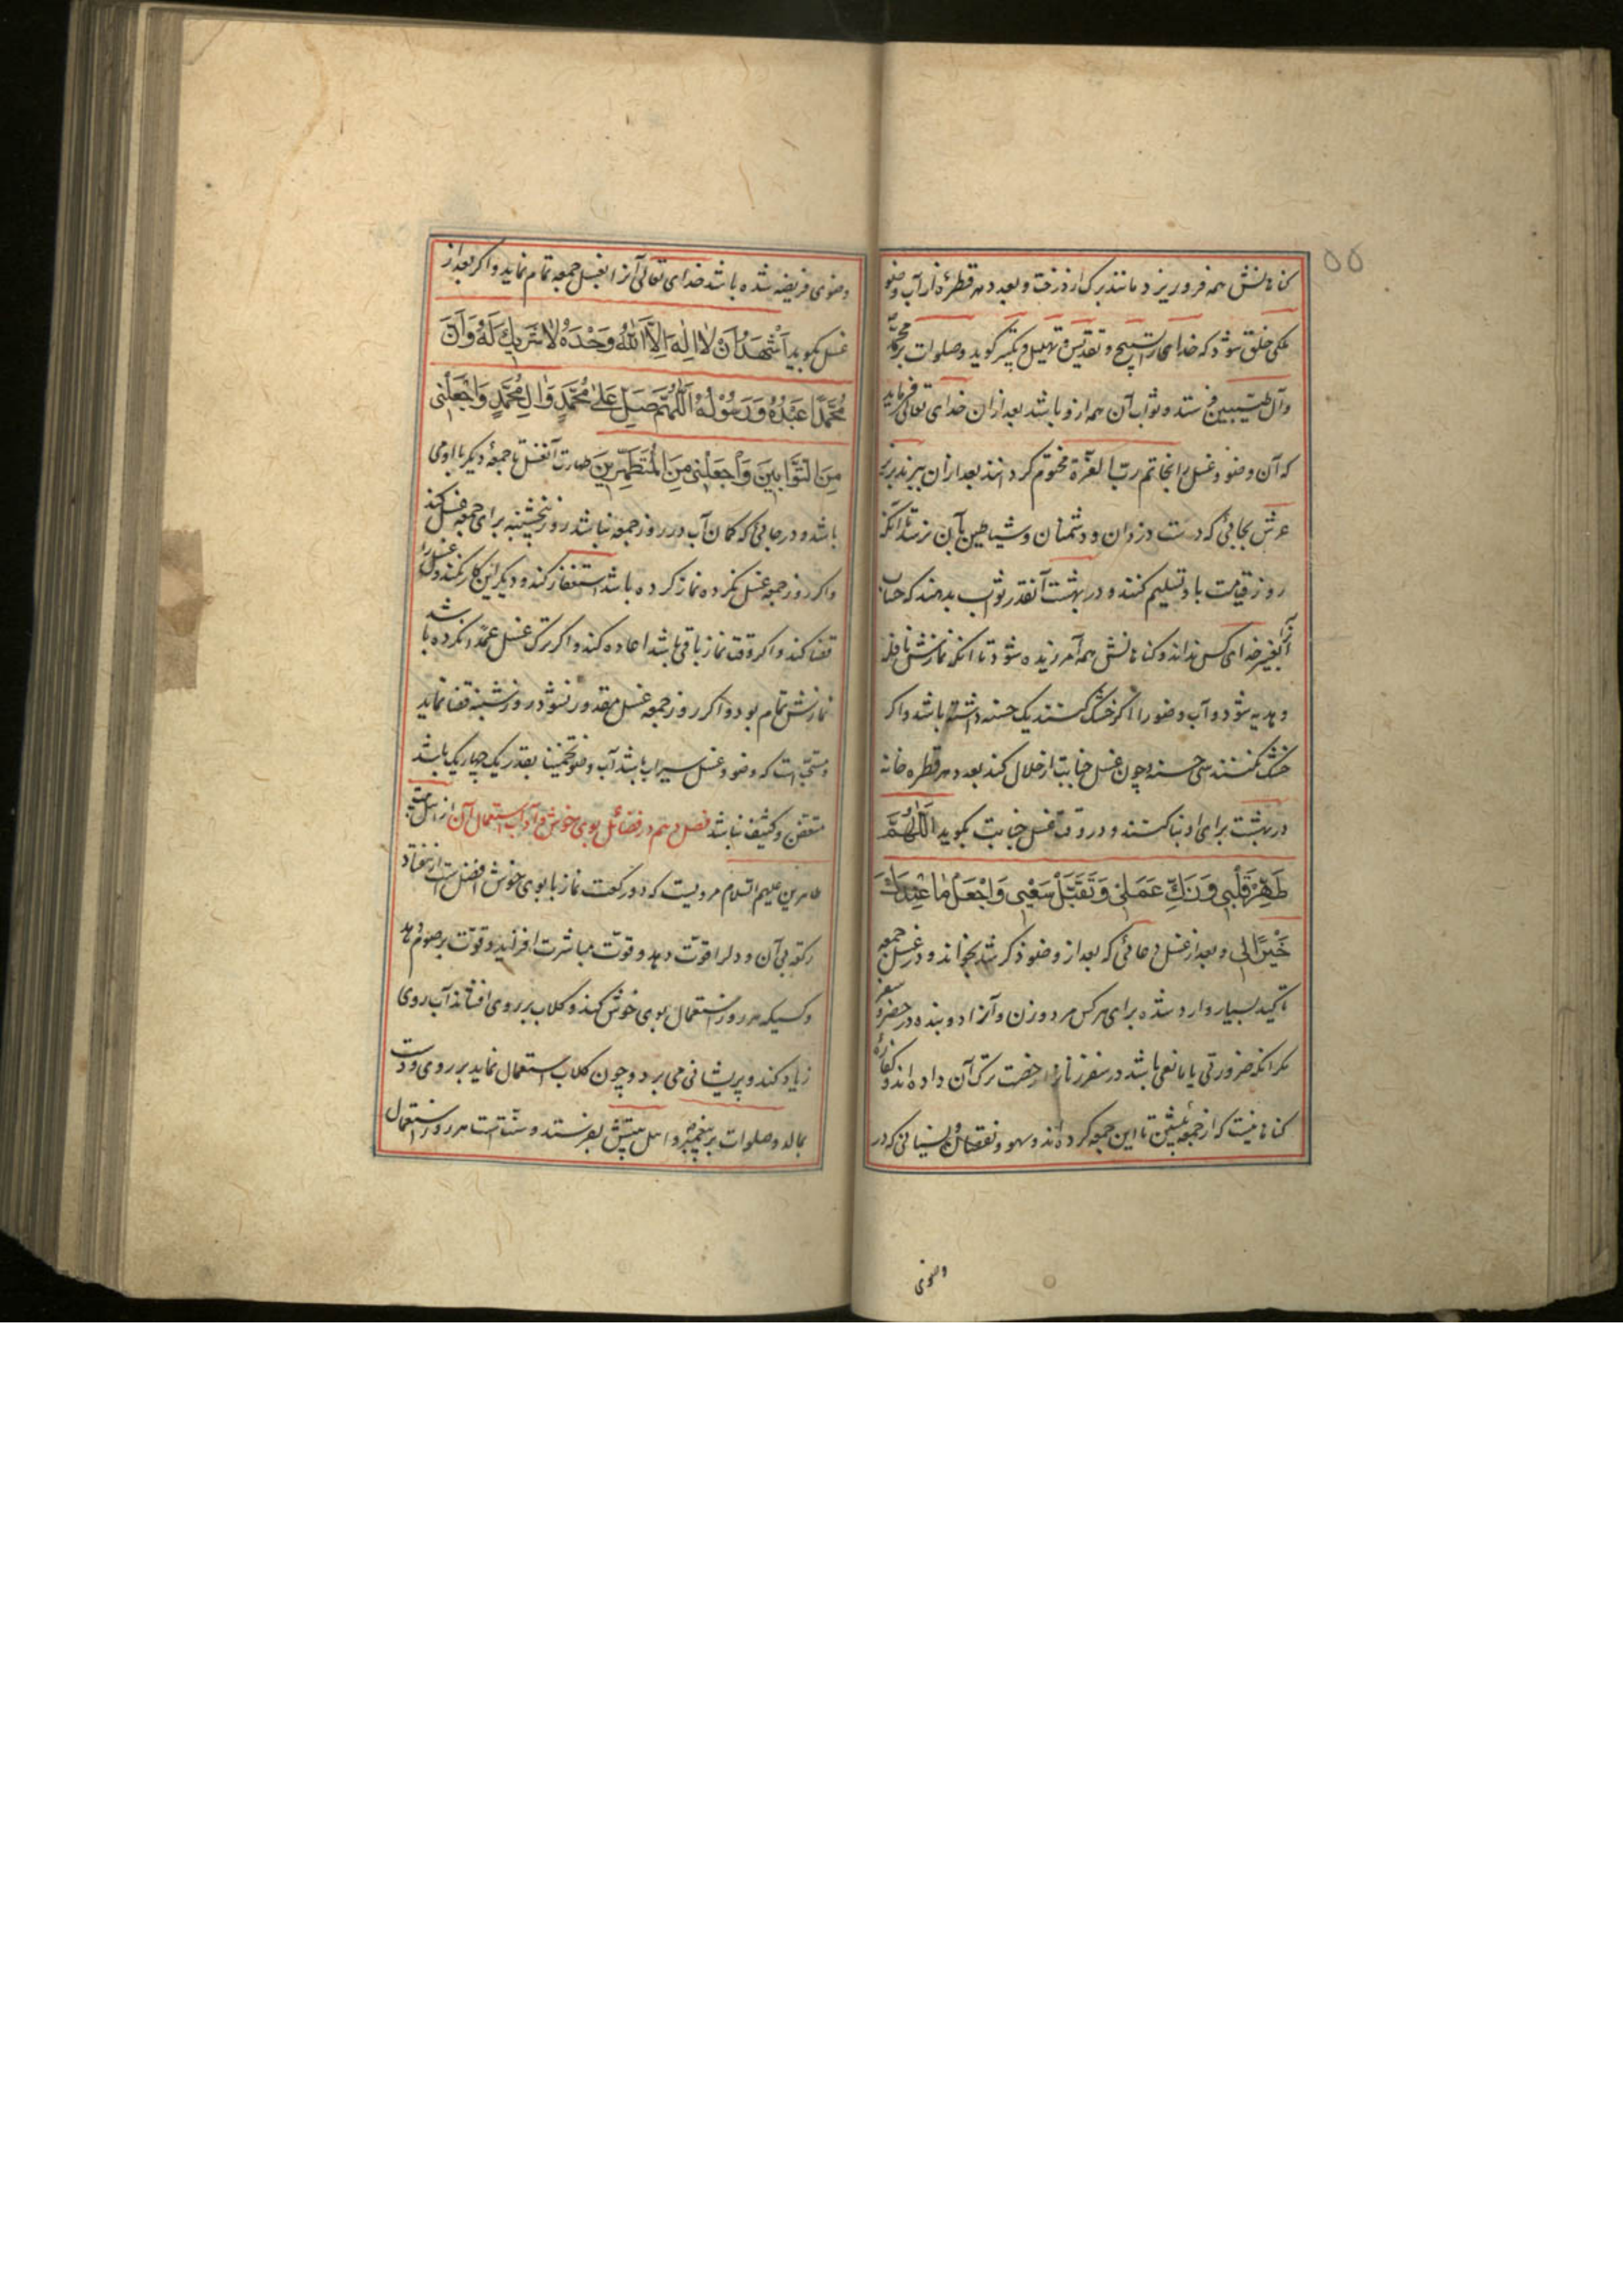 ۵۵
کناهانش همه فرو ریزد مانند برک از درخت و بعدد هر قطرهٔ از آب وضو
ملکی خلق شود که خدایرا تسبیح و تقدیس و تهلیل و تکبیر کوید و صلوات بر محمد
و آل طیبین فرستد و ثواب آن همه ازو باشد بعد ازان خدای تعالی فرماید
که آن وضو و غسل را بخاتم رب العزة مختوم کردانند بعد ازان ببرند بزیر
عرش بجائی که دست دزدان و دشمنان و شیاطین بآن نرسد تا آنکه
روز قیامت باو تسلیم کنند و در بهشت آنقدر ثواب بدهند که حساب
آنرا بغیر خدای کس نداند و کناهانش همه آمرزیده شود تا آنکه نمازش نافله
و هدیه شود و آب وضو را اکر خشک کنند یک حسنه داشته باشد و اکر
خشک نکنند سی حسنه و چون غسل جنابت از حلال کند بعدد هر قطره خانه
در بهشت برای او بنا کنند و در وقت غسل جنابت بکوید اَللّٰهُمَّ
طَهِّرْ قَلْبِی وَ زَكِّ عَمَلِی وَ تَقَبَّلْ سَعْیِی وَاجْعَلْ مٰا عِنْدَكَ
خَیْرًا لِی و بعد از غسل دعائی که بعد از وضو ذکر شد بخواند و در غسل جمعه
تاکید بسیار وارد شده برای هر کس مرد و زن و آزاد و بنده در حضر و سفر
مکر آنکه ضرورتی یا مانعی باشد در سفر زنانرا رخصت ترک آن داده اند و کفارهٔ
کناهانیست که از جمعه پیشین تا این جمعه کرده اند و سهو و نقصان و نسیانی که در
وضوی
وضوی فریضه شده باشد خدای تعالی آنرا بغسل جمعه تمام نماید و اکر بعد از
غسل بکوید اَشْهَدُ اَنْ لٰا اِلٰهَ اِلَّا اللّٰهُ وَحْدَهُ لٰا شَرِیكَ لَهُ وَاَنَّ
مُحَمَّدًا عَبْدُهُ وَرَسُوْلُهُ اَللّٰهُمَّ صَلِّ عَلٰی مُحَمَّدٍ وَاٰلِ مُحَمَّدٍ وَاجْعَلْنِی
مِنَ التَّوَّابِینَ وَاجْعَلْنِی مِنَ الْمُتَطَهِّرِینَ طهارت آنغسل تا جمعهٔ دیکر با او می
باشد و در جائی که کمان آب در روز جمعه نباشد روز پنجشنبه برای جمعه غسل کند
و اکر روز جمعه غسل نکرده نماز کرده باشد استغفار کند و دیکر این کار نکند و غسل را
قضا کند و اکر وقت نماز باقی باشد اعاده کند و اکر ترک غسل عمدًا نکرده باشد
نمازش تمام بود و اکر روز جمعه غسل مقدور نشود در روز شنبه قضا نماید
و مستحب است که وضو و غسل سیراب باشد آب وضو تخمینا بقدر یک چهاریک باشد
متعفن و کثیف نباشد فصل دهم در فضائل بوی خوش و آداب استعمال آن از اهل بیت
طاهرین علیهم السلام مرویست که دو رکعت نماز با بوی خوش افضل است از هفتاد
رکعت بی آن و دلرا قوت دهد و قوت مباشرت افزاید و قوت بر صوم دهد
و کسیکه هر روز استعمال بوی خوش کند و کلاب بر روی افشاند آب روی
زیاد کند و پریشانی می برد و چون کلاب استعمال نماید بر روی و دست
بمالد و صلوات بر پیغمبر و اهل بیتش بفرستد و سنت است هر روز استعمال